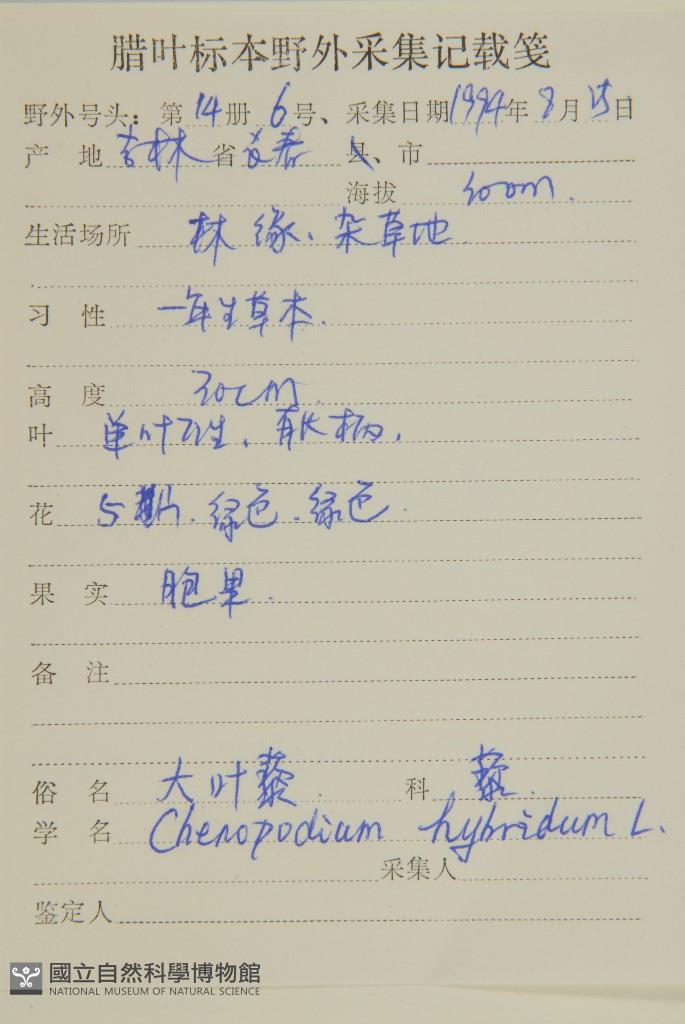 腊叶标本野外采集记载笺
野外号头：第14册6号、采集日期1994年8月15日
产 地 吉林省长春 县、市
海拔 300m.
生活场所 林缘、杂草地
习 性 一年生草本.
高 度 30cm.
叶 单叶互生，有长柄，
花 5 绿色.绿色.
果 实 胞果.
备 注
俗 名 大叶藜. 科 藜.
学 名 Chenopodium hybridum L.
采集人
鉴定人
國立自然科學博物館
NATIONAL MUSEUM OF NATURAL SCIENCE